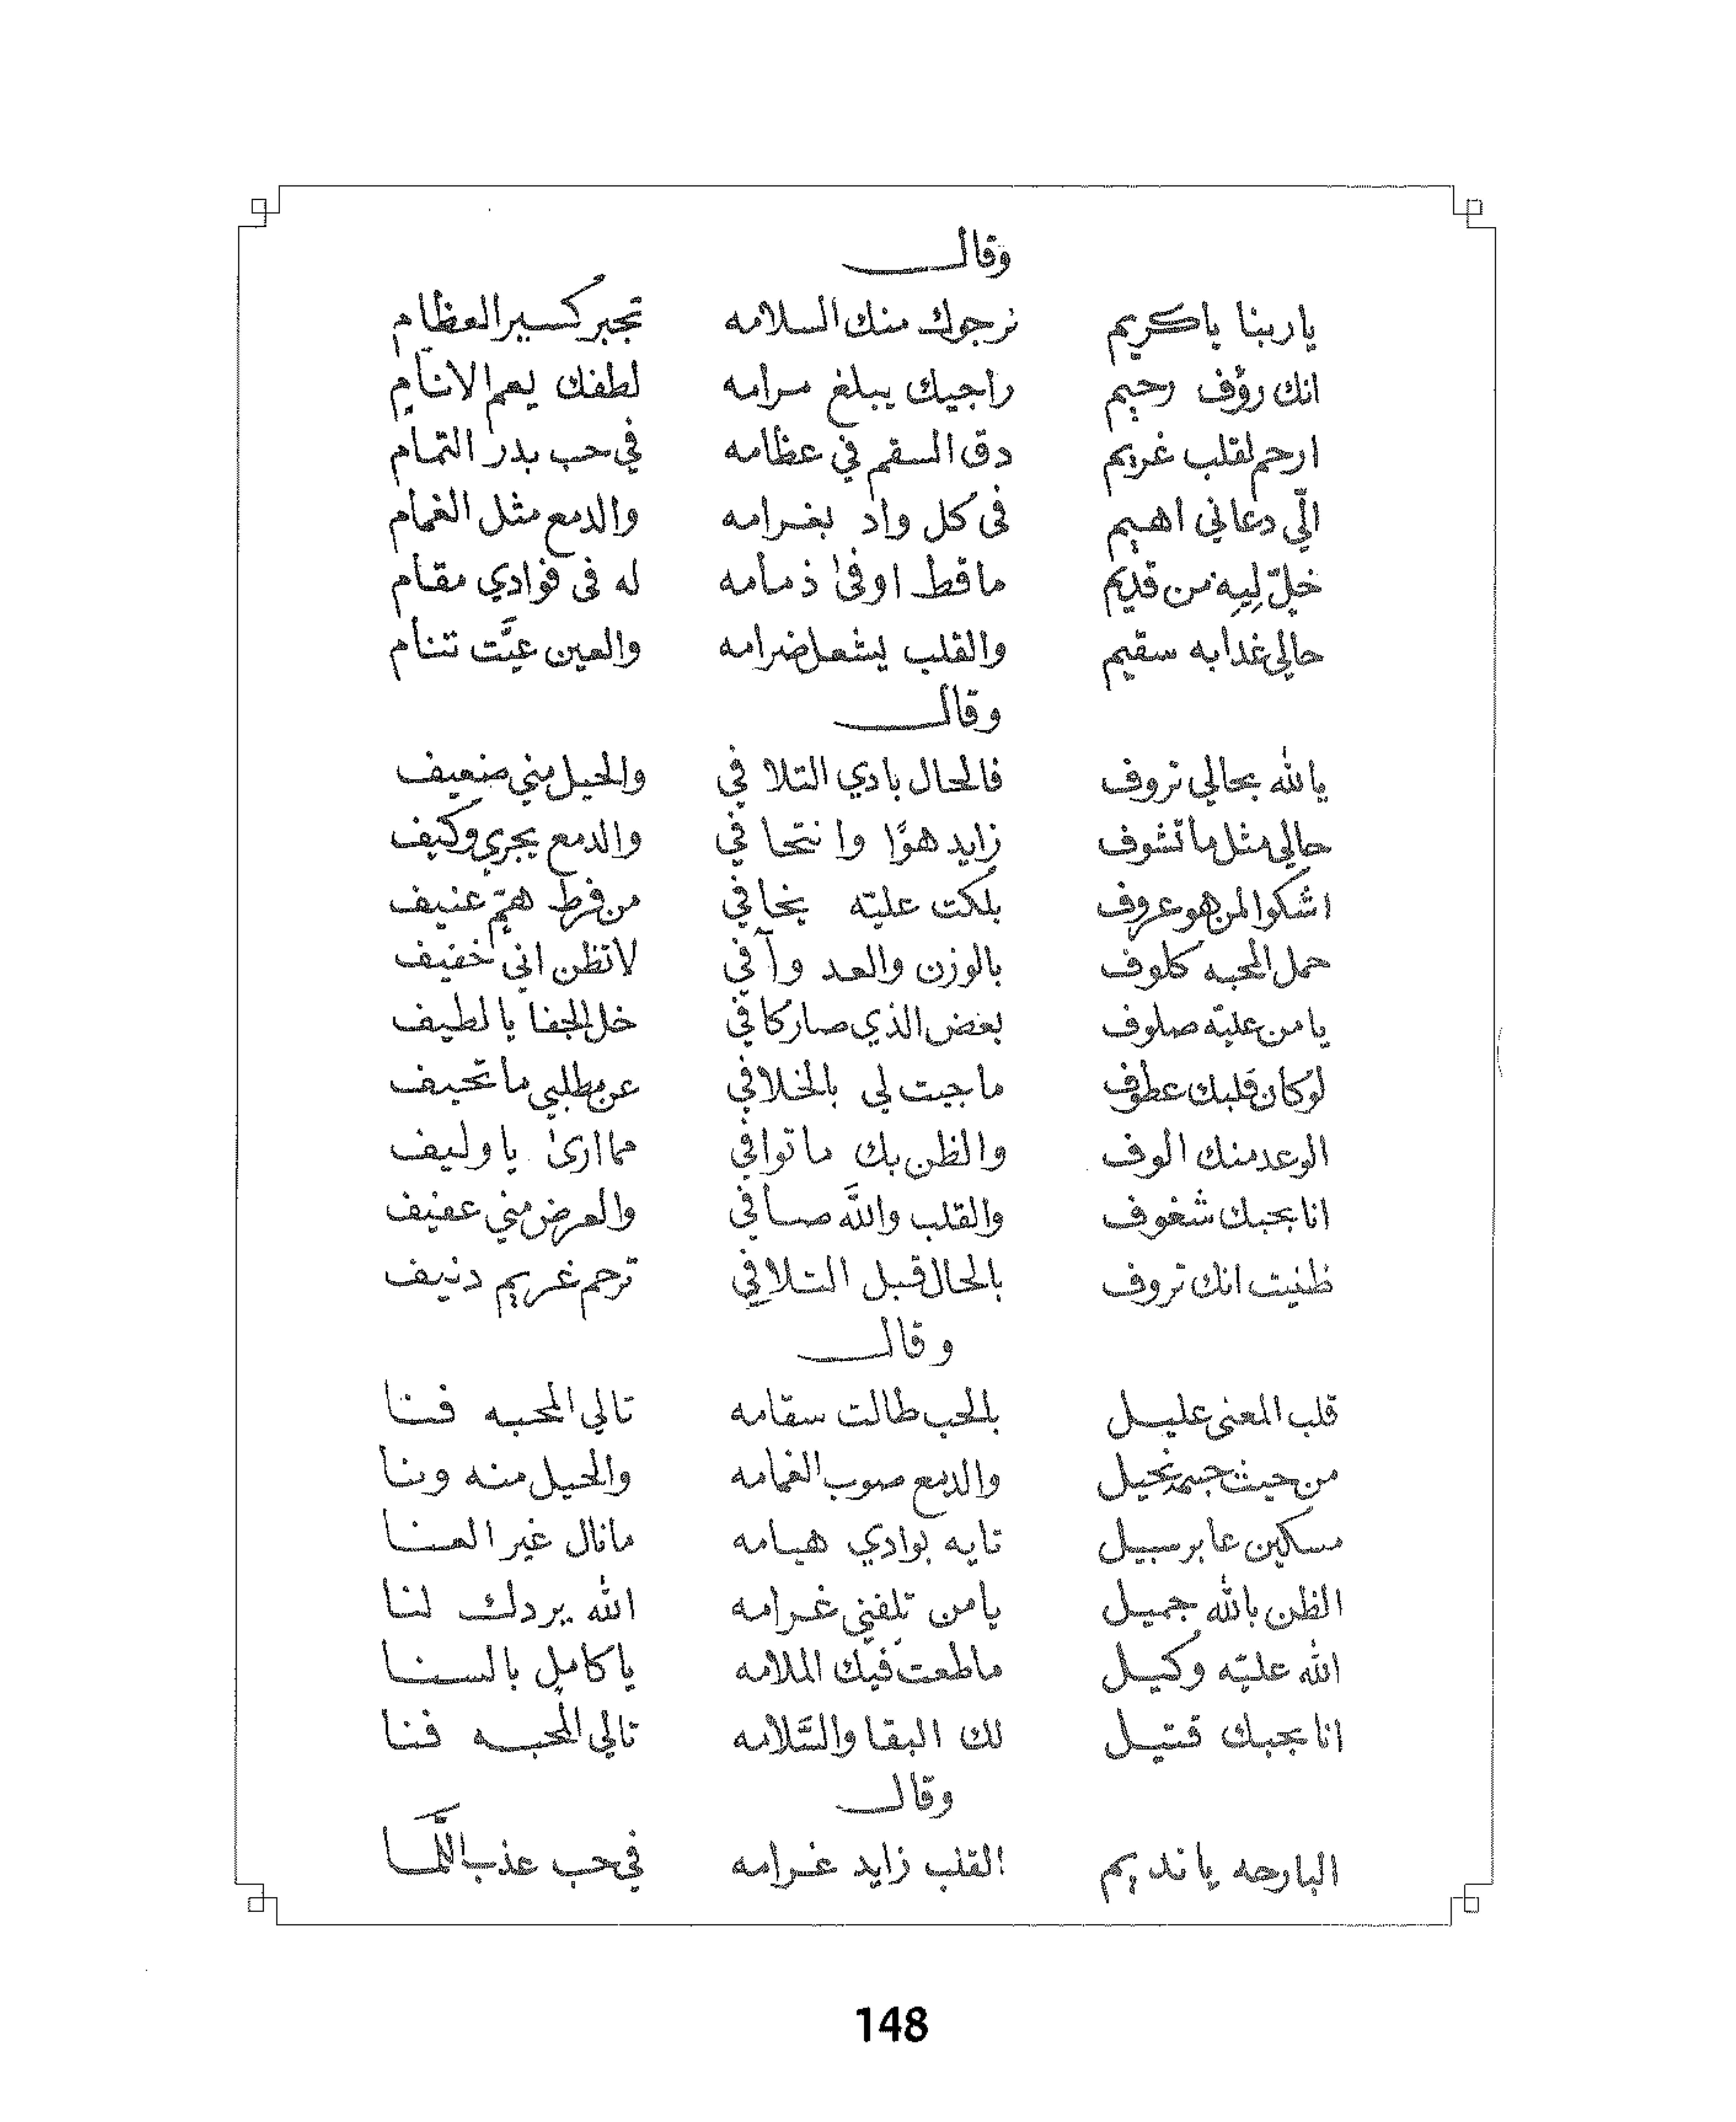 وقال
ياربنا ياكريم نرجوك منك السلامه تجبر كسير العظام
انك رؤف رحيم راجيك يبلغ مرامه لطفك يعم الانام
ارحم لقلب غريم دق السقم في عظامه في حب بدر التمام
الّي دعاني اهيم في كل واد بغرامه والدمع مثل الغمام
خلٍّ لِيِه من قديم ما قط اوفىٰ ذمامه له في فوادي مقام
حالي غدابه سقيم والقلب يشعل ضرامه والعين عيَّت تنام
وقال
يالله بحالي تروف فالحال بادي التلافي والحيل مني ضعيف
حالي مثل ما تشوف زايد هوًا وانتحافي والدمع يجري وكيف
اشكوا لمن هو عروف بلكت عليّه يخافي من فرط همٍّ عنيف
حمل المحبه كلوف بالوزن والعد وآفي لا تظن اني خفيف
يا من عليّه صلوف بعض الذي صار كافي خل الجفا يا لطيف
لو كان قلبك عطوف ما جيت لي بالخلافي عن مطلبي ما تحيف
الوعد منك الوف والظن بك ما توافي مما ارىٰ يا وليف
انا بحبك شغوف والقلب والله صافي والعرض مني عفيف
ظنيت انك تروف بالحال قبل التلافي ترحم غريم دنيف
وقال
قلب المعنى عليل بالحب طالت سقامه تالي المحبه فنا
من حيث جسمه نحيل والدمع صوب الغمامه والحيل منه ونا
مسكين عابر سبيل تايه بوادي هيامه ما نال غير العنا
الظن بالله جميل يا من تلفني غرامه الله يردك لنا
الله عليّه وكيل ما طعت فيك الملامه يا كاملٍ بالسنا
انا بحبك قتيل لك البقا والسَّلامه تالي المحبه فنا
وقال
البارحه يا نديم القلب زايد غرامه في حب عذب اللَّما
148